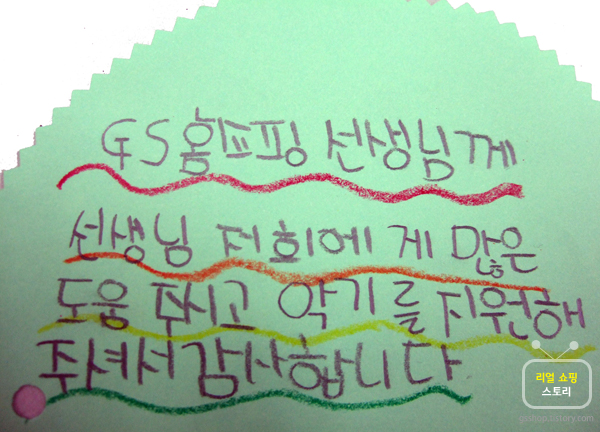 GS홈쇼핑 선생님께
선생님 저희에게 많은
도움 주시고 악기를 지원해
주셔서 감사합니다
리얼 쇼핑
스토리